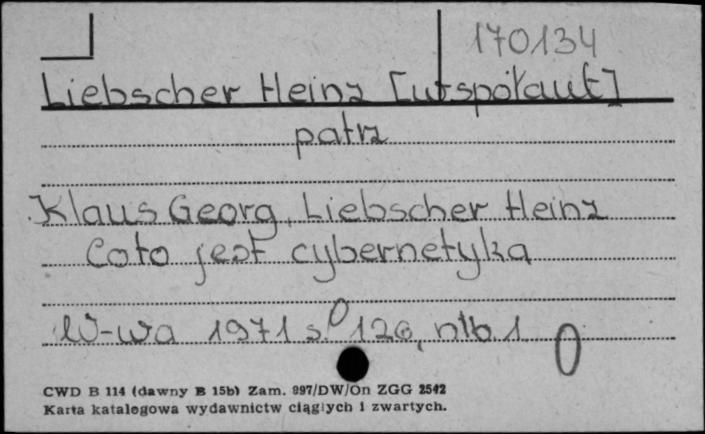 170134
Liebscher Heinz [współaut]
patrz
Klaus Georg, Liebscher Heinz
Co to jest cybernetyka
W-wa 1971 s. 126, nlb. 1
CWD B 114 (dawny B 15b) Zam. 997/DW/On ZGG 2542
Karta katalogowa wydawnictw ciągłych i zwartych.